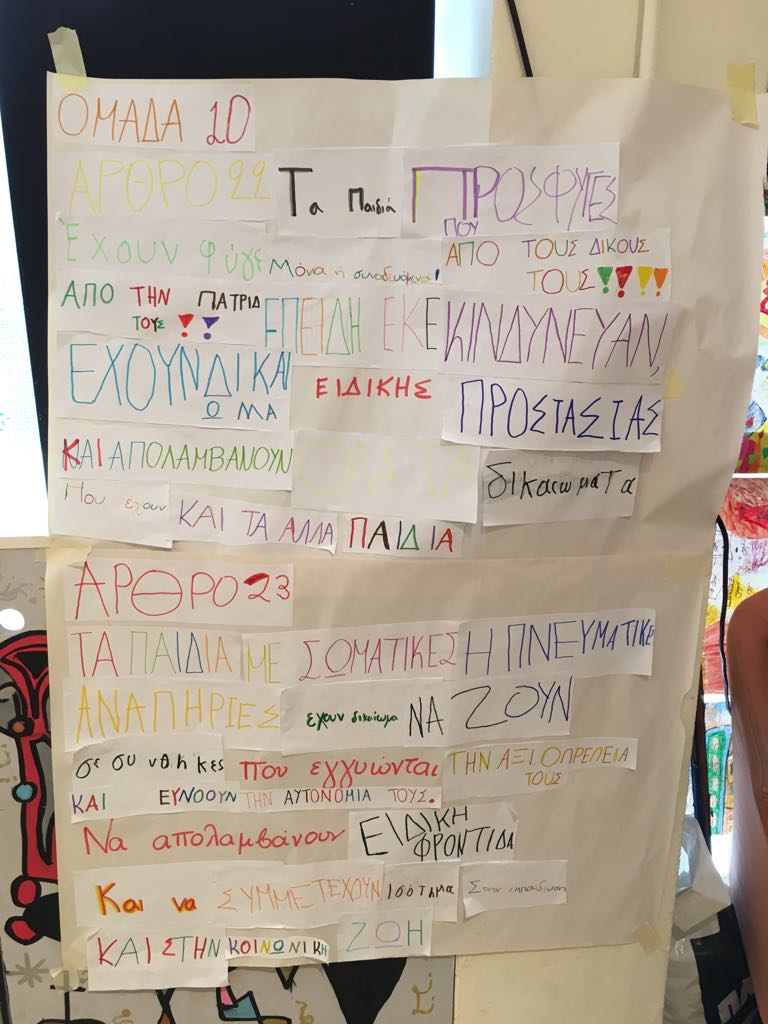 ΟΜΑΔΑ 10
ΑΡΘΡΟ 22 Τα Παιδιά ΠΡΟΣΦΥΓΕΣ
ΠΟΥ
Έχουν φύγε Μόνα ή συνοδευόμενα! ΑΠΟ ΤΟΥΣ ΔΙΚΟΥΣ
ΤΟΥΣ!!!!
ΑΠΟ ΤΗΝ ΠΑΤΡΙΔ
ΤΟΥΣ !! ΕΠΕΙΔΗ ΕΚΕ ΚΙΝΔΥΝΕΥΑΝ,
ΕΧΟΥΝ ΔΙΚΑΙ
ΩΜΑ ΕΙΔΙΚΗΣ ΠΡΟΣΤΑΣΙΑΣ
ΚΑΙ ΑΠΟΛΑΜΒΑΝΟΥΝ ΟΛΑ ΤΑ δικαιωματα
Που έχουν ΚΑΙ ΤΑ ΑΛΛΑ ΠΑΙΔΙΑ
ΑΡΘΡΟ 23
ΤΑ ΠΑΙΔΙΑ ΜΕ ΣΩΜΑΤΙΚΕΣ Η ΠΝΕΥΜΑΤΙΚΕ
ΑΝΑΠΗΡΙΕΣ έχουν δικαίωμα ΝΑ ΖΟΥΝ
σε συνθήκες που εγγυώνται ΤΗΝ ΑΞΙΟΠΡΕΠΕΙΑ
ΤΟΥΣ
ΚΑΙ ΕΥΝΟΟΥΝ ΤΗΝ ΑΥΤΟΝΟΜΙΑ ΤΟΥΣ.
Να απολαμβάνουν ΕΙΔΙΚΗ
ΦΡΟΝΤΙΔΑ
Και να ΣΥΜΜΕΤΕΧΟΥΝ Ισότιμα Στην εκπαιδευση
ΚΑΙ ΣΤΗΝ ΚΟΙΝΩΝΙΚΗ ΖΩΗ